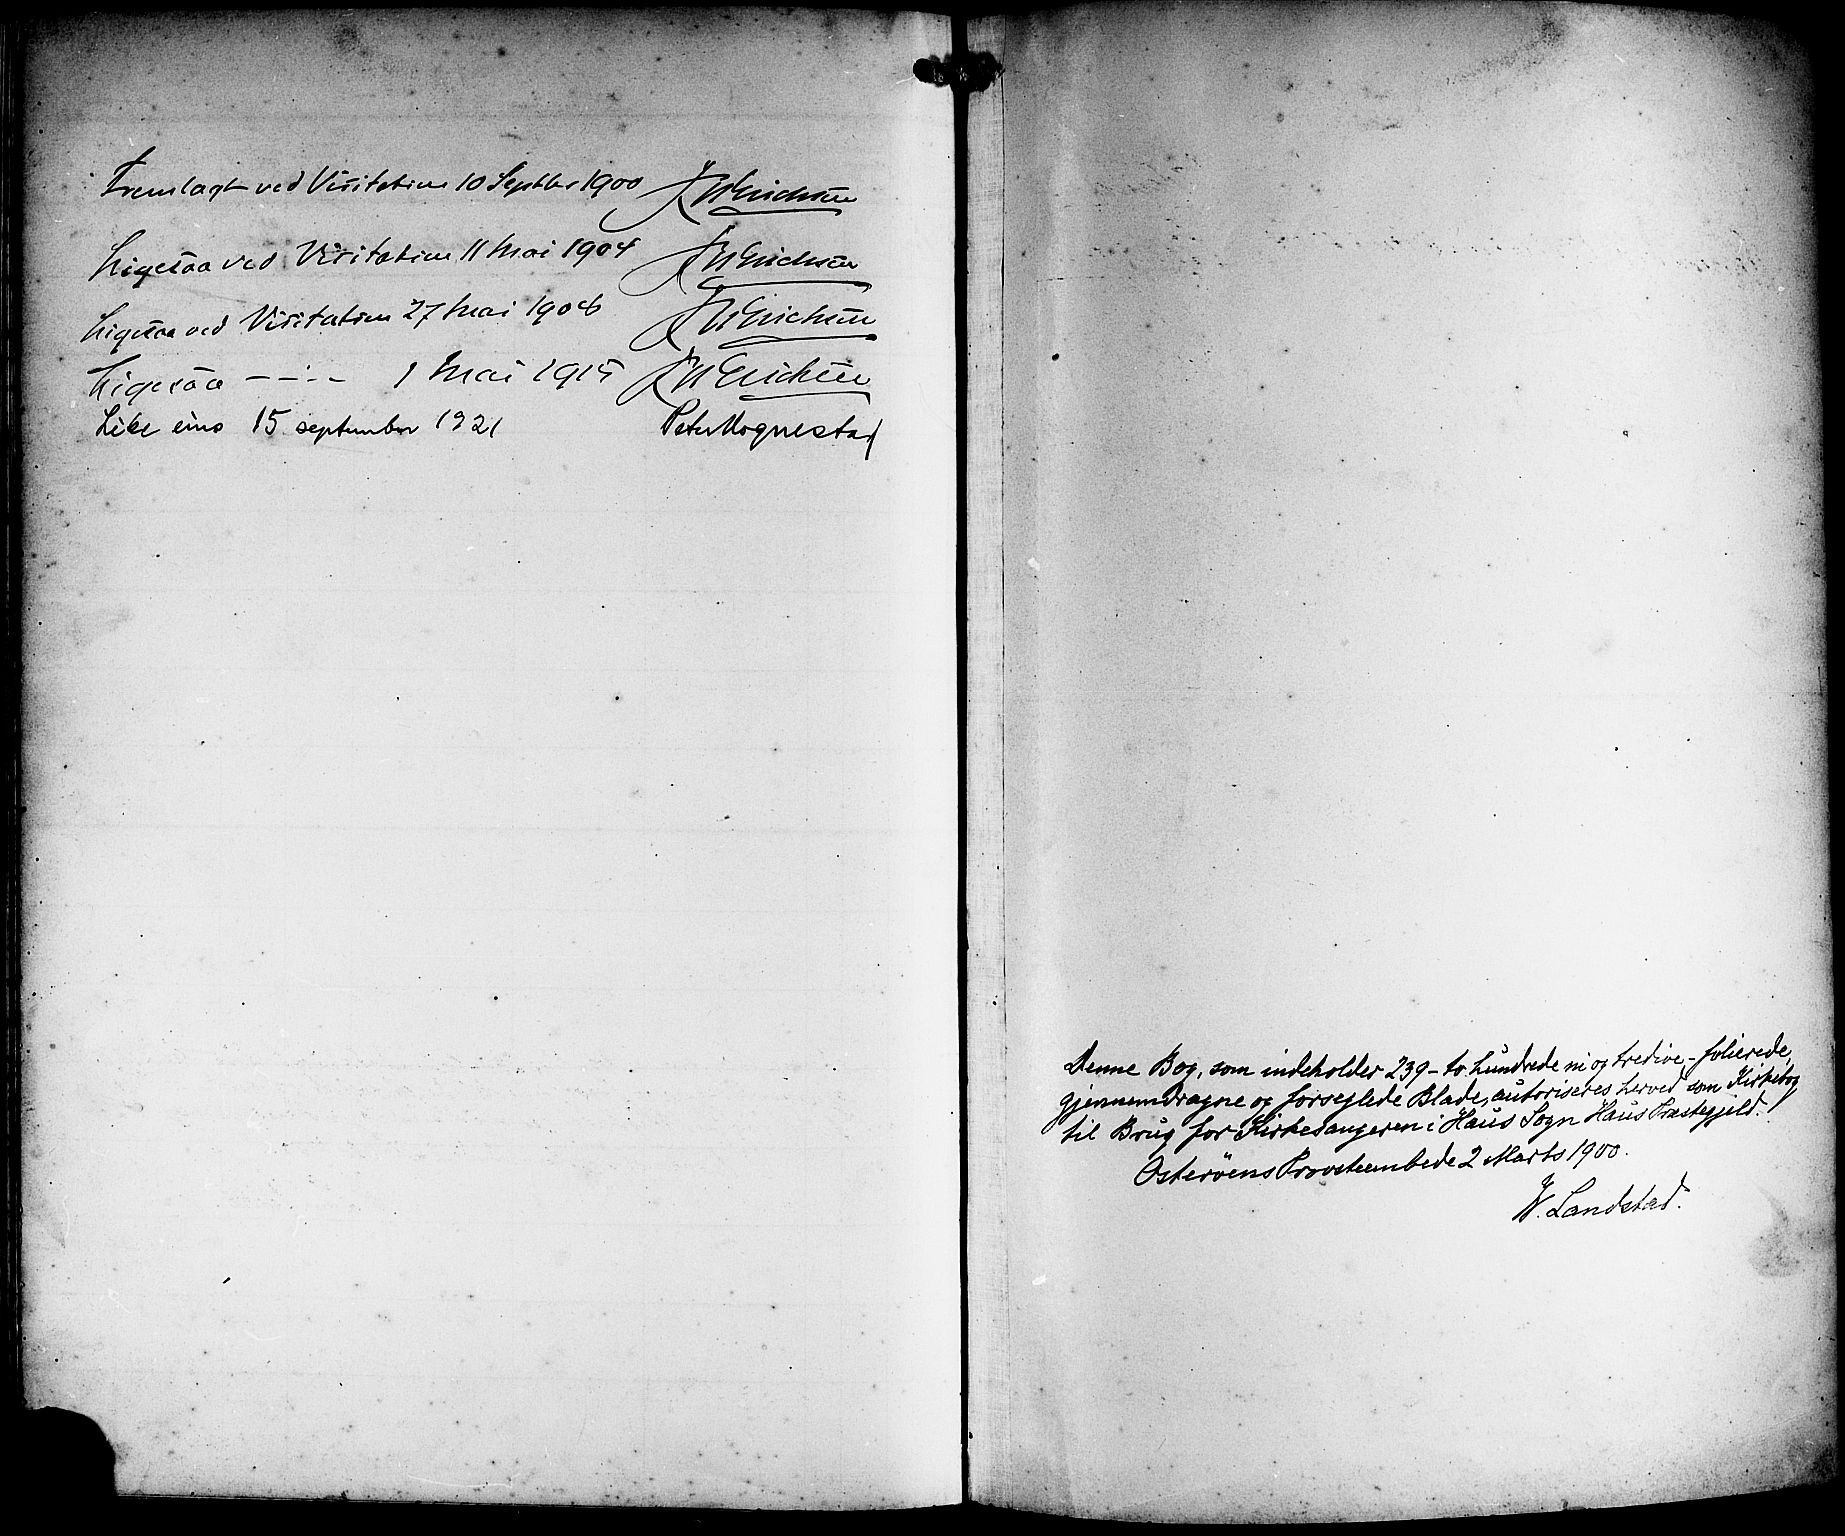 Fremlagt ved Visitatsen 10 Septbr 1900 JWErichsen
Ligesaa ved Visitatsen 11 Mai 1904 JWErichsen
Ligesaa ved Visitatsen 27 Mai 1908 JWErichsen
Ligesaa — — 1 Mai 1915 JWErichsen
Like eins 15 september 1921 Peter Hognestad
Denne Bog, som indeholder 239 - to hundrede ni og tredive - folierede,
gjennemdragne og forseglede Blade, autoriseres herved som Kirkebog
til Brug for Kirkesangeren i Haus Sogn Haus Præstegjeld.
Osterøens Provsteembede 2 Marts 1900.
W. Landstad.